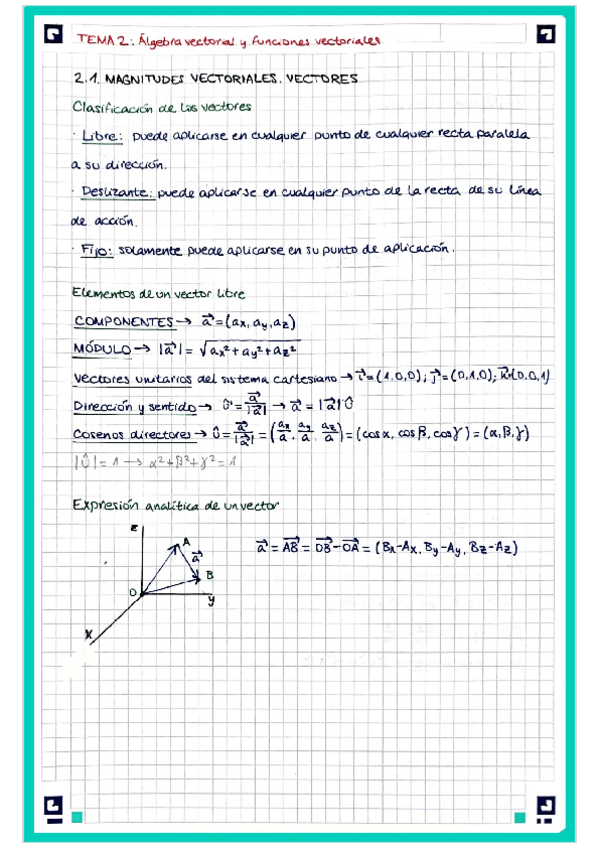 TEMA 2: Álgebra vectorial y funciones vectoriales
2.1. MAGNITUDES VECTORIALES. VECTORES
Clasificación de los vectores
· Libre: puede aplicarse en cualquier punto de cualquier recta paralela
a su dirección.
· Deslizante: puede aplicarse en cualquier punto de la recta de su línea
de acción.
· Fijo: solamente puede aplicarse en su punto de aplicación.
Elementos de un vector libre
COMPONENTES → a⃗ = (ax, ay, az)
MÓDULO → |a⃗| = √(ax² + ay² + az²)
Vectores unitarios del sistema cartesiano → i⃗ = (1,0,0); j⃗ = (0,1,0); k⃗ = (0,0,1)
Dirección y sentido → û = a⃗/|a⃗| → a⃗ = |a⃗| û
Cosenos directores → û = a⃗/|a⃗| = (ax/a, ay/a, az/a) = (cosα, cosβ, cosγ) = (α, β, γ)
|û| = 1 → α² + β² + γ² = 1
Expresión analítica de un vector
z
A
a⃗
a⃗ = AB⃗ = OB⃗ - OA⃗ = (Bx-Ax, By-Ay, Bz-Az)
B
O
y
x